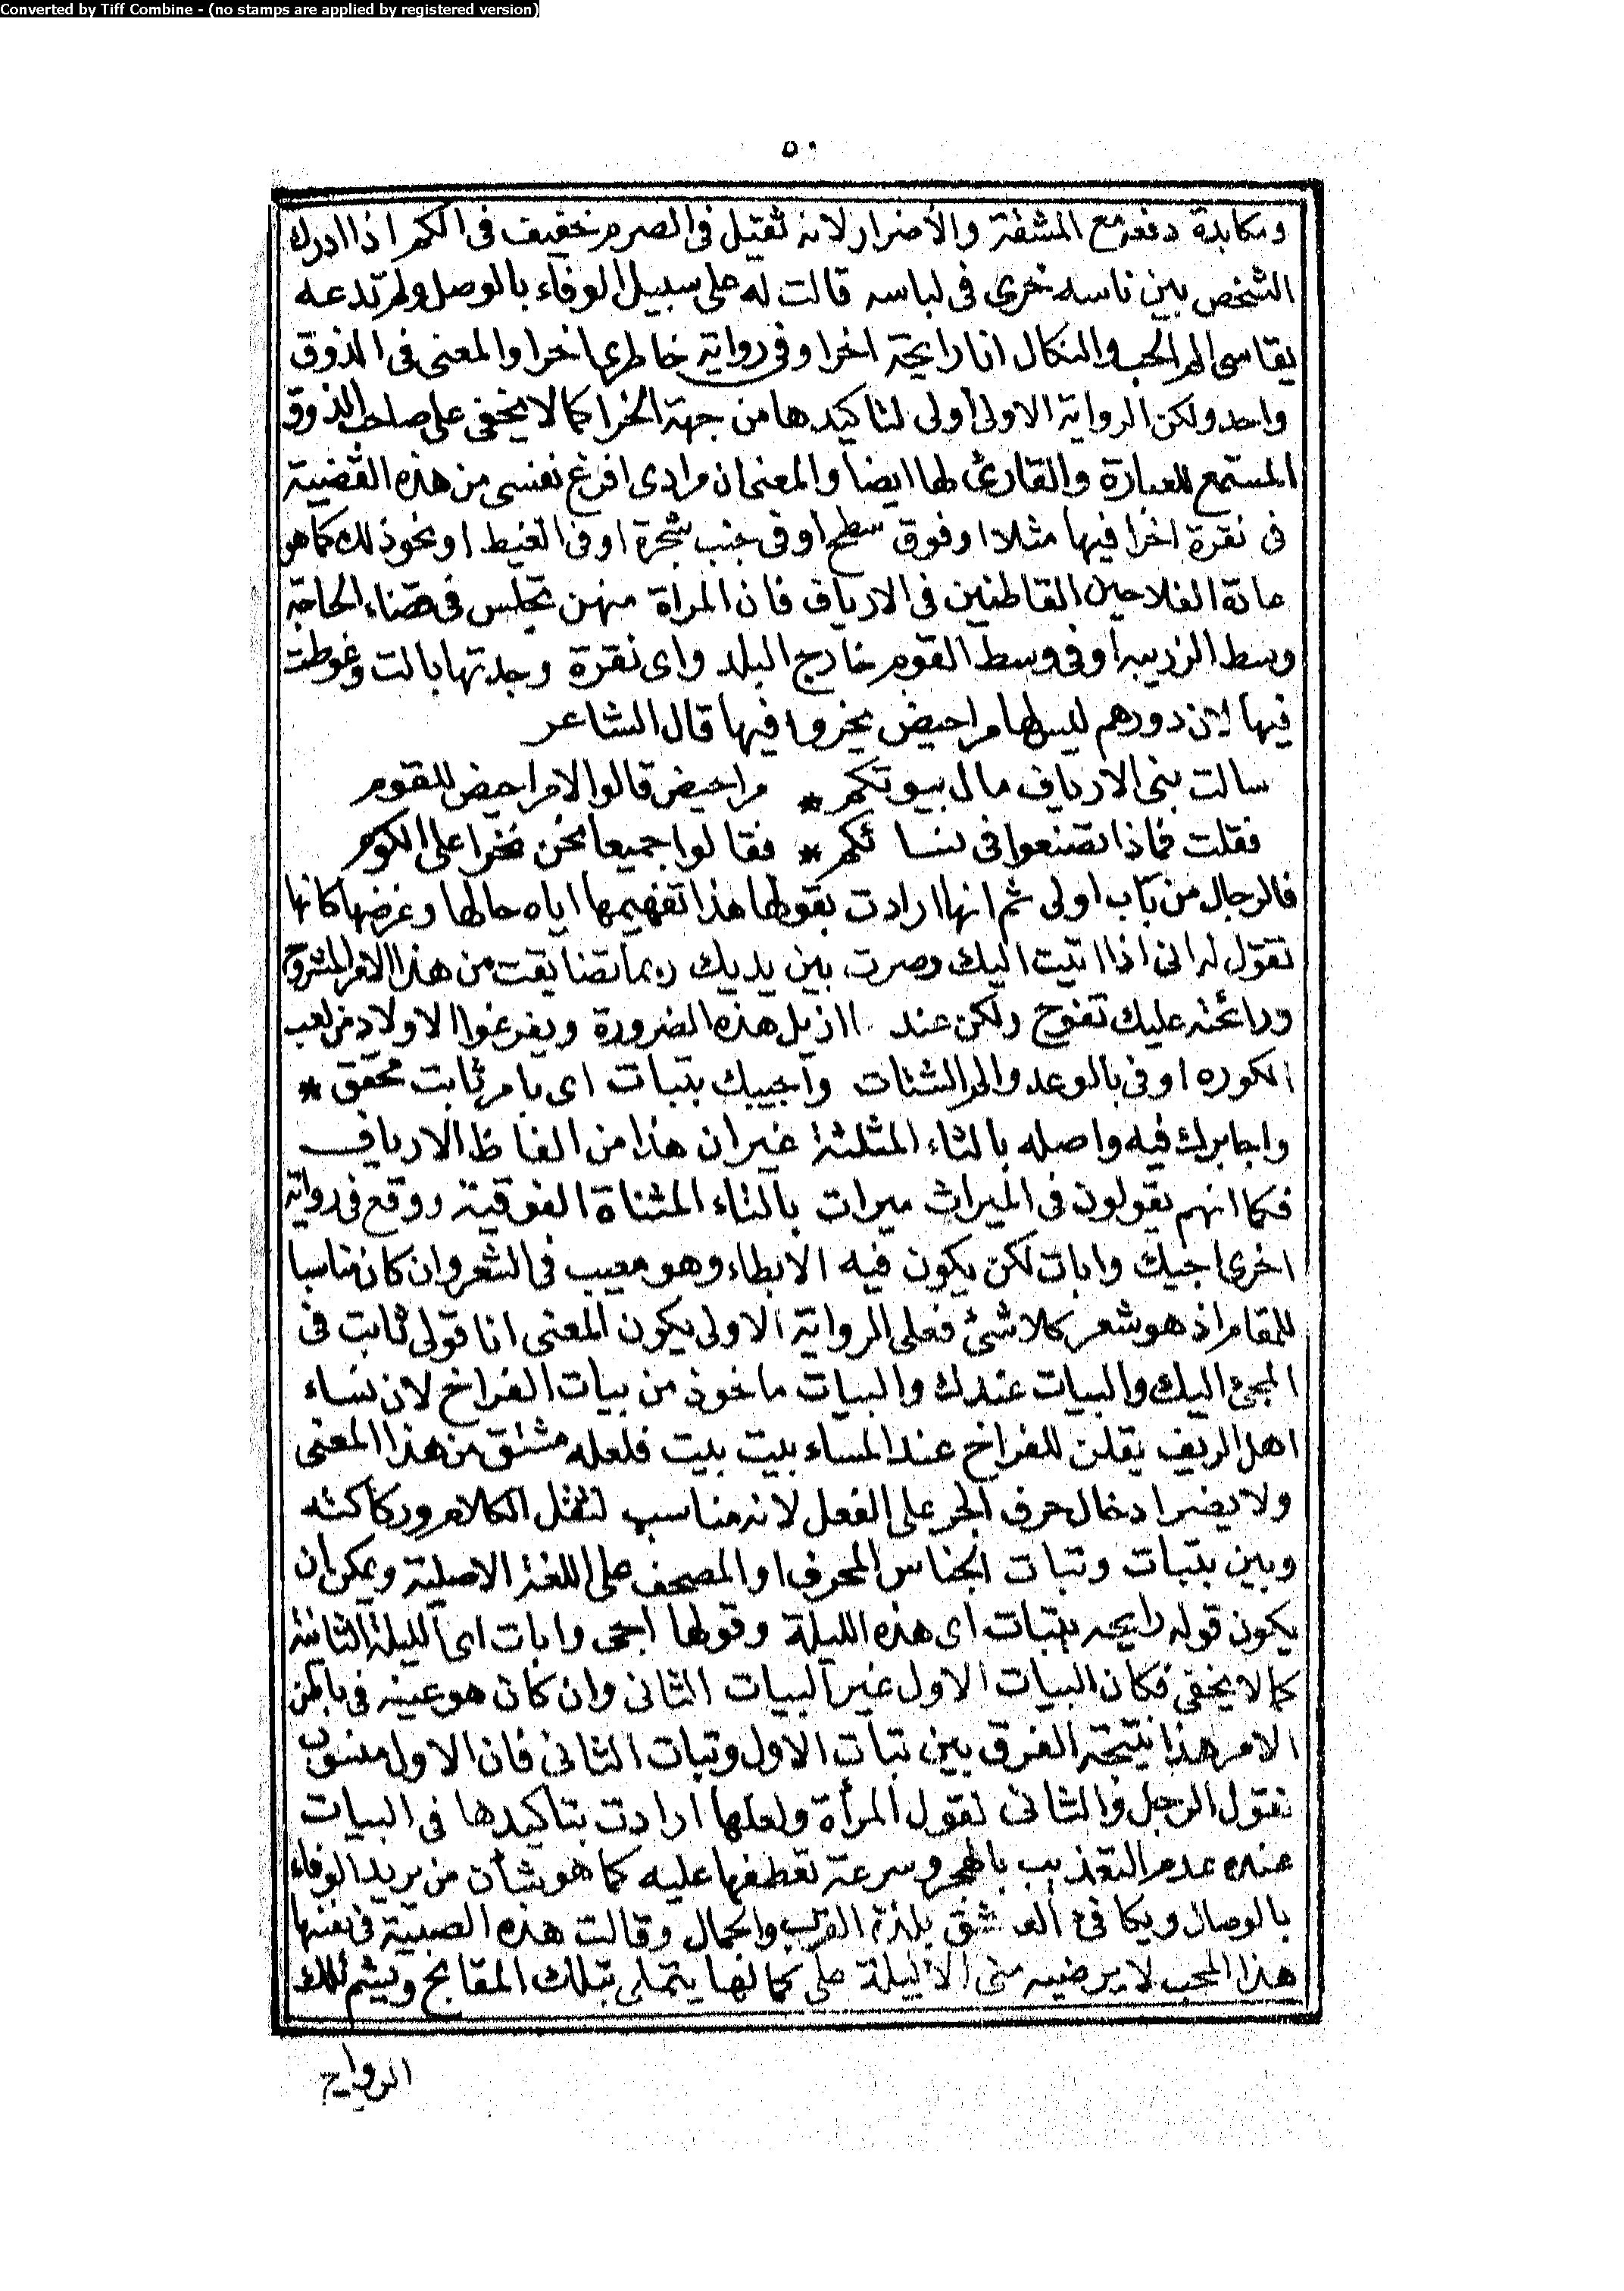 Converted by Tiff Combine - (no stamps are applied by registered version)
٥٠
ومكابدة دفعه مع المشقة والأضرار لانه ثقيل فى الصرم خفيف فى الكم اذا ادرك
الشخص بين ناسه خرى فى لباسه قالت له على سبيل الوفاء بالوصل ولم تدعه
يقاسى الم الحب والنكال انا رايحة اخرا وفى رواية خاطرى اخرا والمعنى فى الذوق
واحد ولكن الرواية الاولى أولى لتاكيدها من جهة الخرا كما لا يخفى على صاحب الذوق
المستمع للعبارة والقارئ لها ايضا والمعنى ان مرادى افرغ نفسى من هذه القضية
فى نقرة اخرا فيها مثلا او فوق سطح او فى جنب شجرة او فى الغيط او نحو ذلك كما هو
عادة الفلاحين القاطنين فى الارياف فان المراة منهن تجلس فى قضاء الحاجة
وسط الزريبه او فى وسط القوم خارج البلد واى نقرة وجدتها بالت وغوطت
فيها لان دورهم ليس لها مراحيض يخروا فيها قال الشاعر
سالت بنى الارياف مال بيوتكم * مراحيض قالوا لا مراحيض للقوم
فقلت فماذا تصنعوا فى نسائكم * فقالوا جميعا نحن نخرا على الكوم
فالرجال من باب اولى ثم انها ارادت بقولها هذا تفهيمها اياه حالها وغرضها كانها
تقول له انى اذا اتيت اليك وصرت بين يديك ربما تضايقت من هذا الامر المشروح
ورائحته عليك تفوح ولكن عند ا ازيل هذه الضرورة ويفرغوا الاولاد من لعب
الكوره اوفى بالوعد والم الشتات وآجيبك بتبات اى بامر ثابت محقق *
واجابرك فيه واصله بالثاء المثلثة غير ان هذا من الفاظ الارياف
فكما انهم يقولون فى الميراث ميرات بالتاء المثناة الفوقية ووقع فى رواية
اخرى اجيك وابات لكن يكون فيه الايطاء وهو معيب فى الشعر وان كان مناسبا
للمقام اذ هو شعر كلا شئ فعلى الرواية الاولى يكون المعنى انا قولى ثابت فى
المجئ اليك والبيات عندك والبيات ماخوذ من بيات الفراخ لان نساء
اهل الريف يقلن للفراخ عند المساء بيت بيت فلعله مشتق من هذا المعنى
ولا يضر ادخال حرف الجر على الفعل لانه مناسب لثقل الكلام وركاكته
وبين بتبات وتبات الجناس المحرف او المصحف على اللغة الاصلية ويمكن ان
يكون قوله رايحه بتبات اى هذه الليلة وقولها اجى وابات اى الليلة الثانية
كما لا يخفى فكان البيات الاول غير البيات الثانى وان كان هو عينه فى باطن
الامر هذا نتيجة الفرق بين تبات الاول وتبات الثانى فان الاول منسوب
لقول الرجل والثانى لقول المرأة ولعلها ارادت بتاكيدها فى البيات
عنده عدم التعذيب بالهجر وسرعة تعطفها عليه كما هو شأن من يريد الوفاء
بالوصال ويكافئ العشق بلذة القرب والجمال وقالت هذه الصبية فى نفسها
هذا المحب لا يرضيه منى الا ليلة على كمالها يتملى بتلك المقابح ويشم تلك
الروايح